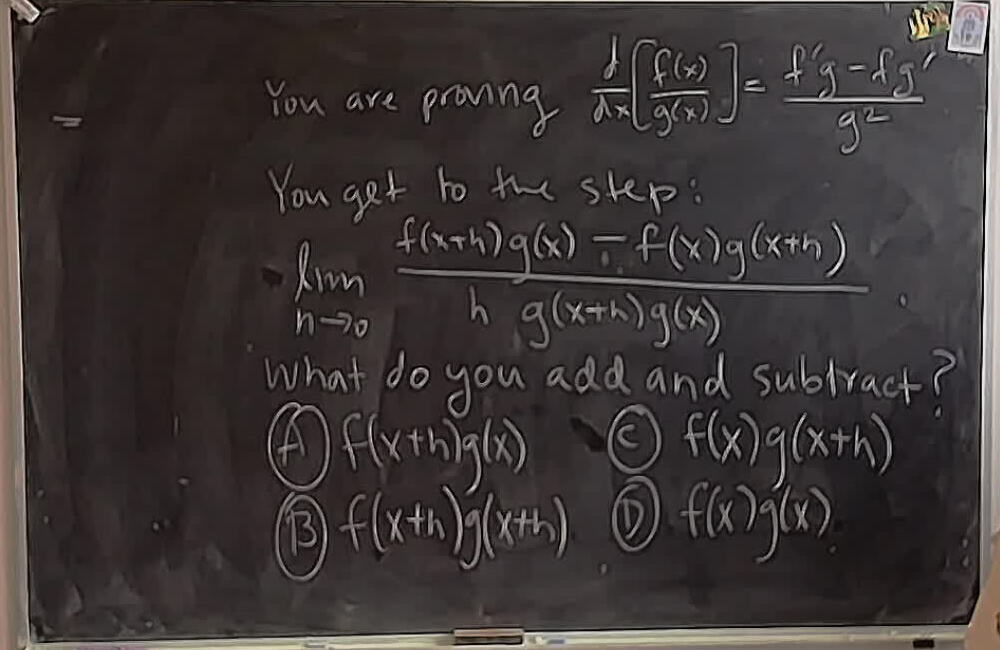 You are proving d/dx [f(x)/g(x)] = f'g - fg' / g²
You get to the step:
lim h→0 f(x+h)g(x) - f(x)g(x+h) / h g(x+h)g(x)
What do you add and subtract?
(A) f(x+h)g(x) (C) f(x)g(x+h)
(B) f(x+h)g(x+h) (D) f(x)g(x)